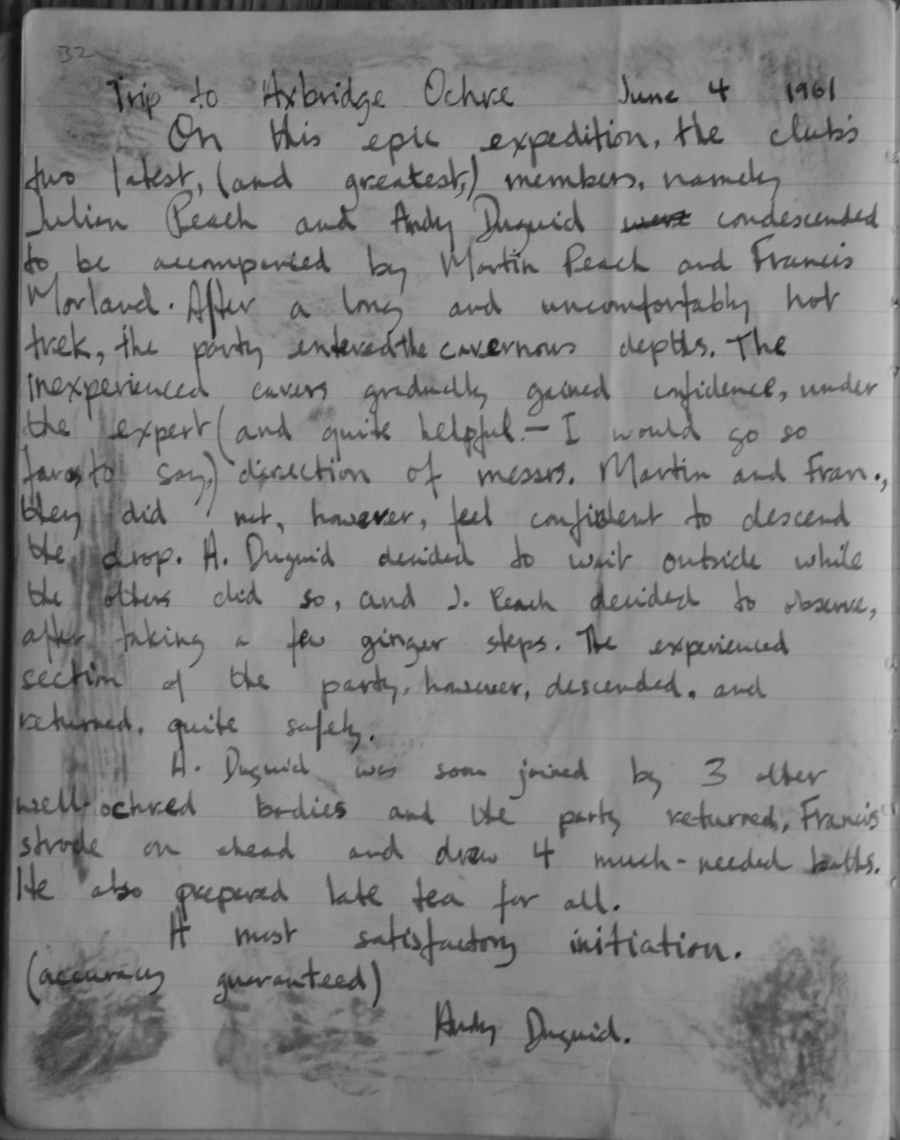 32
Trip to Axbridge Ochre June 4 1961
On this epic expedition, the club's
two latest, (and greatest,) members, namely
Julian Peach and Andy Duguid were condescended
to be accompanied by Martin Peach and Francis
Morland. After a long and uncomfortably hot
trek, the party entered the cavernous depths. The
inexperienced cavers gradually gained confidence, under
the expert (and quite helpful - I would go so
far as to say,) direction of messrs. Martin and Fran.,
they did not, however, feel confident to descend
the drop. A. Duguid decided to wait outside while
the others did so, and J. Peach decided to observe,
after taking a few ginger steps. The experienced
section of the party, however, descended, and
returned, quite safely.
A. Duguid was soon joined by 3 other
well-ochred bodies and the party returned, Francis
strode on ahead and drew 4 much-needed baths.
He also prepared late tea for all.
A most satisfactory initiation.
(accuracy guaranteed)
Andy Duguid.